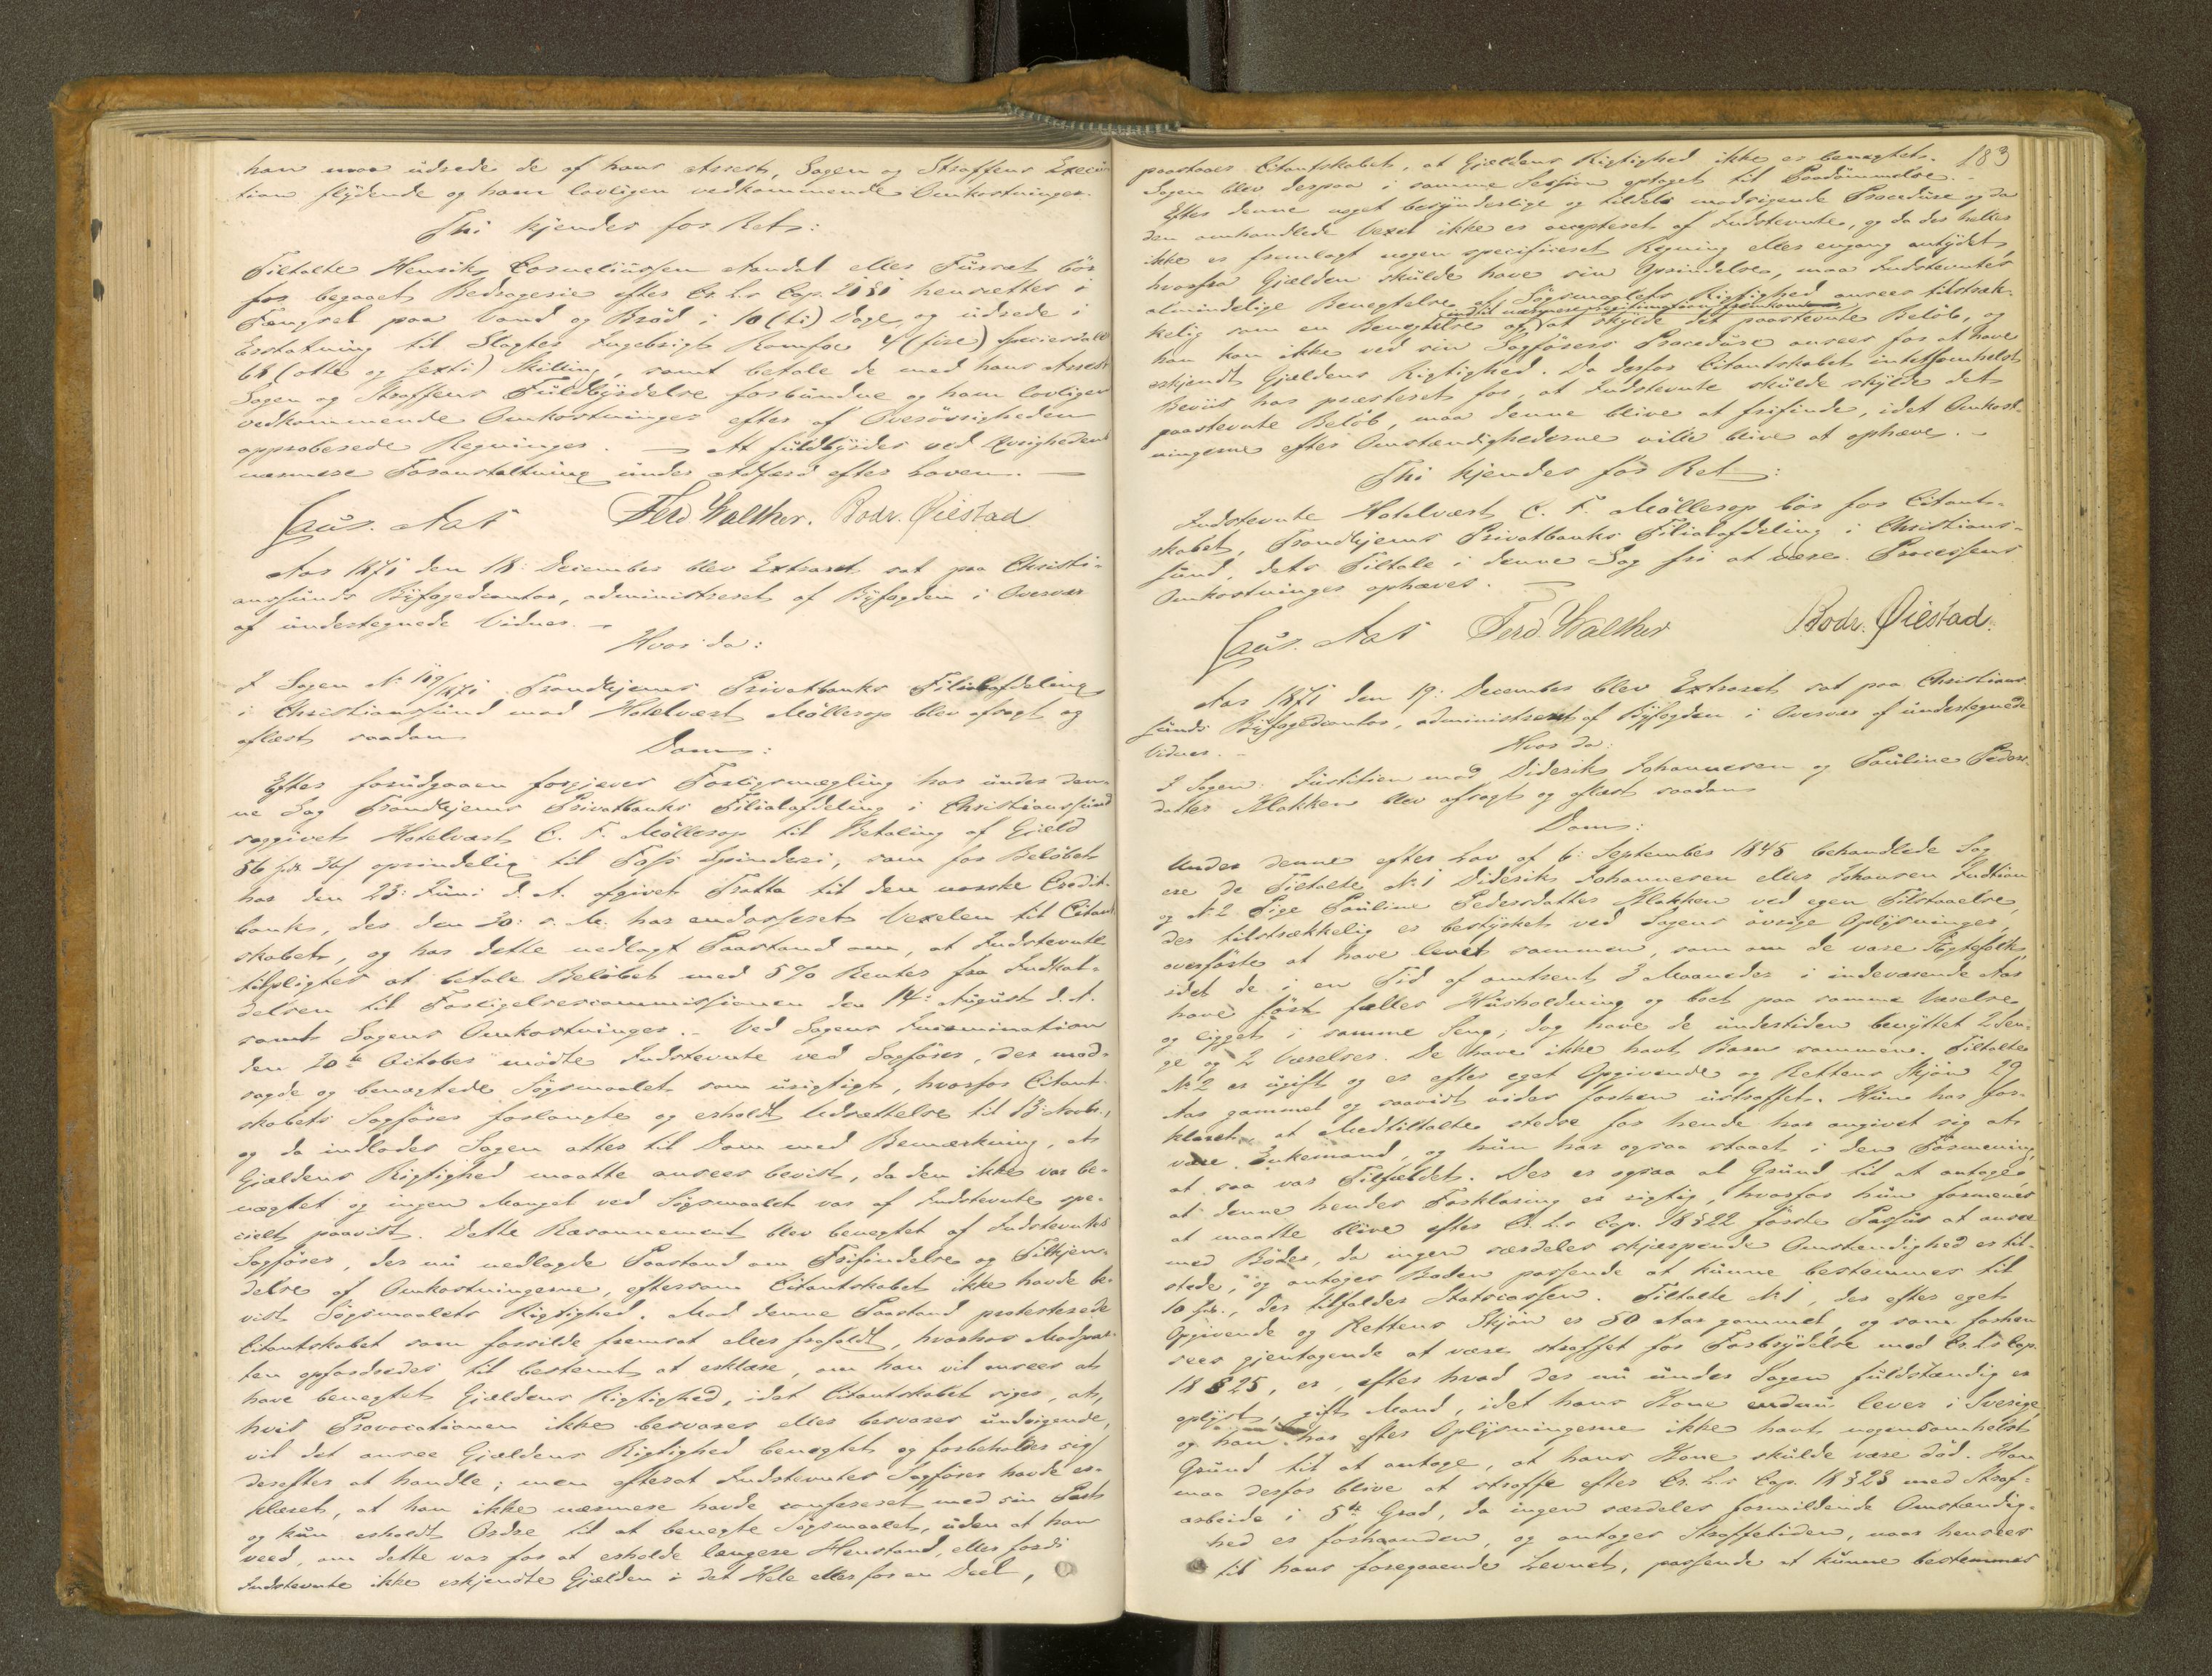 han maa udrede de af hans Arrest, Sagen og Straffens Execu-
tion flydende og ham lovligen vedkommende Omkostninger.
Thi kjendes for Ret:
Tiltalte Henrik Corneliussen Aandal eller Fursæt bør
for begaaet Bedragerie efter Cr. L.s Cap. 21 § 1 hensættes i
Fængsel paa Vand og Brød i 10 (ti) Dage og udrede i
Erstatning til Slagter Ingebrigt Ramsøe 4 (fire) Speciesdaler
68 (otte og sexti) Skilling, samt betale de med hans Arrest
Sagen og Straffens Fuldbyrdelse forbundne og ham lovligen
vedkommende Omkostninger efter af Overøvrigheden
approberede Regninger. — At fuldbyrdes ved Øvrighedens
nærmere Foranstaltning under Adfærd efter Loven. —
Laur. Aas Ferd Walther. Bodv. Øiestad
Aar 1871 den 18: December blev Extraret sat paa Christi-
anssunds Byfogedcontor, administreret af Byfogden i Overvær
af undertegnede Vidner. —
Hvor da:
I Sagen No 109/1871 Trondhjems Privatbanks Filialafdeling
i Christianssund mod Hotelvært Møllerop blev afsagt og
aflæst saadan
Dom:
Efter forudgaaen forgjæves Forligsmægling har under den-
ne Sag Trondhjems Privatbanks Filialafdeling i Christianssund
sagsgivet Hotelvært C. F. Møllerop til Betaling af Gjæld
56 Spd. 36 s oprindelig til Foss Spinderi, som for Beløbet
har den 23: Juni d. A. afgivet Tratta til den norske Credit-
bank, der den 30: s. M. har endosseret Vexelen til Citant-
skabet, og har dette nedlagt Paastand om, at Indstevnte
tilpligtes at betale Beløbet med 5 % Renter fra Indkal-
delsen til Forligelsescommissionen den 14: August d. A.
samt Sagens Omkostninger. - Ved Sagens Incamination
den 20de October mødte Indstevnte ved Sagfører, der mod-
sagde og benægtede Søgsmaalet som urigtigt, hvorfor Citant-
skabets Sagfører forlangte og erholdt Udsættelse til 13: Novbr.,
og da indlodes Sagen atter til Dom med Bemærkning, at
Gjældens Rigtighed maatte ansees bevist, da den ikke var be-
nægtet og ingen Mangel ved Søgsmaalet var af Indstevnte spe-
cielt paavist. Dette Raisonnement blev benegtet af Indstevntes
Sagfører, der nu nedlagde Paastand om Frifindelse og Tilkjen-
delse af Omkostningerne, eftersom Citantskabet ikke havde be-
vist Søgsmaalets Rigtighed. Mod denne Paastand protesterede
Citantskabet som forsilde fremsat eller frafaldt, hvorhos Modpar-
ten opfordredes til bestemt at erklære, om han vil ansees at
have benegtet Gjældens Rigtighed, idet Citantskabet siges, at,
hvis Provocationen ikke besvares eller besvares undvigende,
vil det ansee Gjældens Rigtighed benægtet og forbeholder sig
derefter at handle; men efterat Indstevntes Sagfører havde er-
klæret, at han ikke nærmere havde confereret med sin Part
og kun erholdt Ordre til at benegte Søgsmaalet, uden at han
veed, om dette var for at erholde længere Henstand, eller fordi
Indstevnte ikke erkjendte Gjælden i det Hele eller for en Deel,
183
paastaaes Citantskabet, at Gjældens Rigtighed ikke er benegtet.
Sagen blev derpaa i samme Session optaget til Paadømmelse. -
Efter denne noget besynderlige og tildels modsigende Procedure og da
den omhandlede Vexel ikke er accepteret af Indstevnte, og da der heller
ikke er fremlagt nogen specificeret Regning eller engang antydet,
hvorfra Gjælden skulde have sin Oprindelse, maa Indstevntes
almindelige Benegtelse af Søgsmaalets Rigtighed ansees tilstræk-
indtil nærmere
kelig som en Benegtelse af at skylde det paastevnte Beløb, og
han kan ikke ved sin Sagførers Procedure ansees for at have
erkjendt Gjældens Rigtighed. Da derfor Citantskabet intetsomhelst
Beviis har præsteret for, at Indstevnte skulde skylde det
paastevnte Beløb, maa denne blive at frifinde, idet Omkost-
ningerne efter Omstændighederne ville blive at ophæve. -
Thi kjendes for Ret:
Indstevnte Hotelvært C. F. Møllerop bør for Citant-
skabet, Trondhjems Privatbanks Filialafdeling i Christians-
sund, dets Tiltale i denne Sag fri at være. Processens
Omkostninger ophæves. —
Laur. Aas Ferd. Walther Bodv. Øiestad.
Aar 1871 den 19: December blev Extraret sat paa Christians-
sunds Byfogedcontor, administreret af Byfogden i Overvær af undertegnede
Vidner. -
Hvor da:
I Sagen Justitien mod Diderik Johannesen og Pauline Peders-
datter Klakken blev afsagt og aflæst saadan
Dom:
Under denne efter Lov af 6: September 1845 behandlede Sag
ere de Tiltalte No 1 Diderik Johannesen eller Johansen Indtian
og No 2 Pige Pauline Pedersdatter Klakken ved egen Tilstaaelse,
der tilstrækkelig er bestyrket ved Sagens øvrige Oplysninger,
overførte at have levet sammen, som om de vare Ægtefolk,
idet de i en Tid af omtrent 3 Maaneder i indeværende Aar
have ført fælles Husholdning og boet paa samme Værelse
og ligget i samme Seng, dog have de undertiden benyttet 2 Sen-
ge og 2 Værelser. De have ikke havt Børn sammen. Tiltalte
No 2 er ugift og er efter eget Opgivende og Rettens Skjøn 29
Aar gammel og saavidt vides forhen ustraffet. Hun har for-
klaret, at Medtiltalte stedse for hende har angivet sig at
være Enkemand, og hun har ogsaa staaet i den Formening,
at saa var Tilfældet. Der er ogsaa al Grund til at antage,
at denne hendes Forklaring er rigtig, hvorfor hun formenes
at maatte blive efter Cr. L.s Cap. 18 § 22 første Passus at ansee
med Bøder, da ingen særdeles skjærpende Omstændighed er til-
stede, og antages Boden passende at kunne bestemmes til
10 Spd., der tilfalder Statscassen. Tiltalte No 1, der efter eget
Opgivende og Rettens Skjøn er 50 Aar gammel, og som forhen
sees gjentagende at være straffet for Forbrydelse mod Cr. L.s Cap.
18 § 25, er, efter hvad der nu under Sagen fuldstændig er
oplyst, gift Mand, idet hans Kone endnu lever i Sverige,
og han har efter Oplysningerne ikke havt nogensomhelst
Grund til at antage, at hans Kone skulde være død. Han
maa derfor blive at straffe efter Cr. L.s Cap. 18 § 23 med Straf-
arbeide i 5te Grad, da ingen særdeles formildende Omstændig-
hed er forhaanden, og antages Straffetiden, naar hensees
til hans foregaaende Levnet, passende at kunne bestemmes